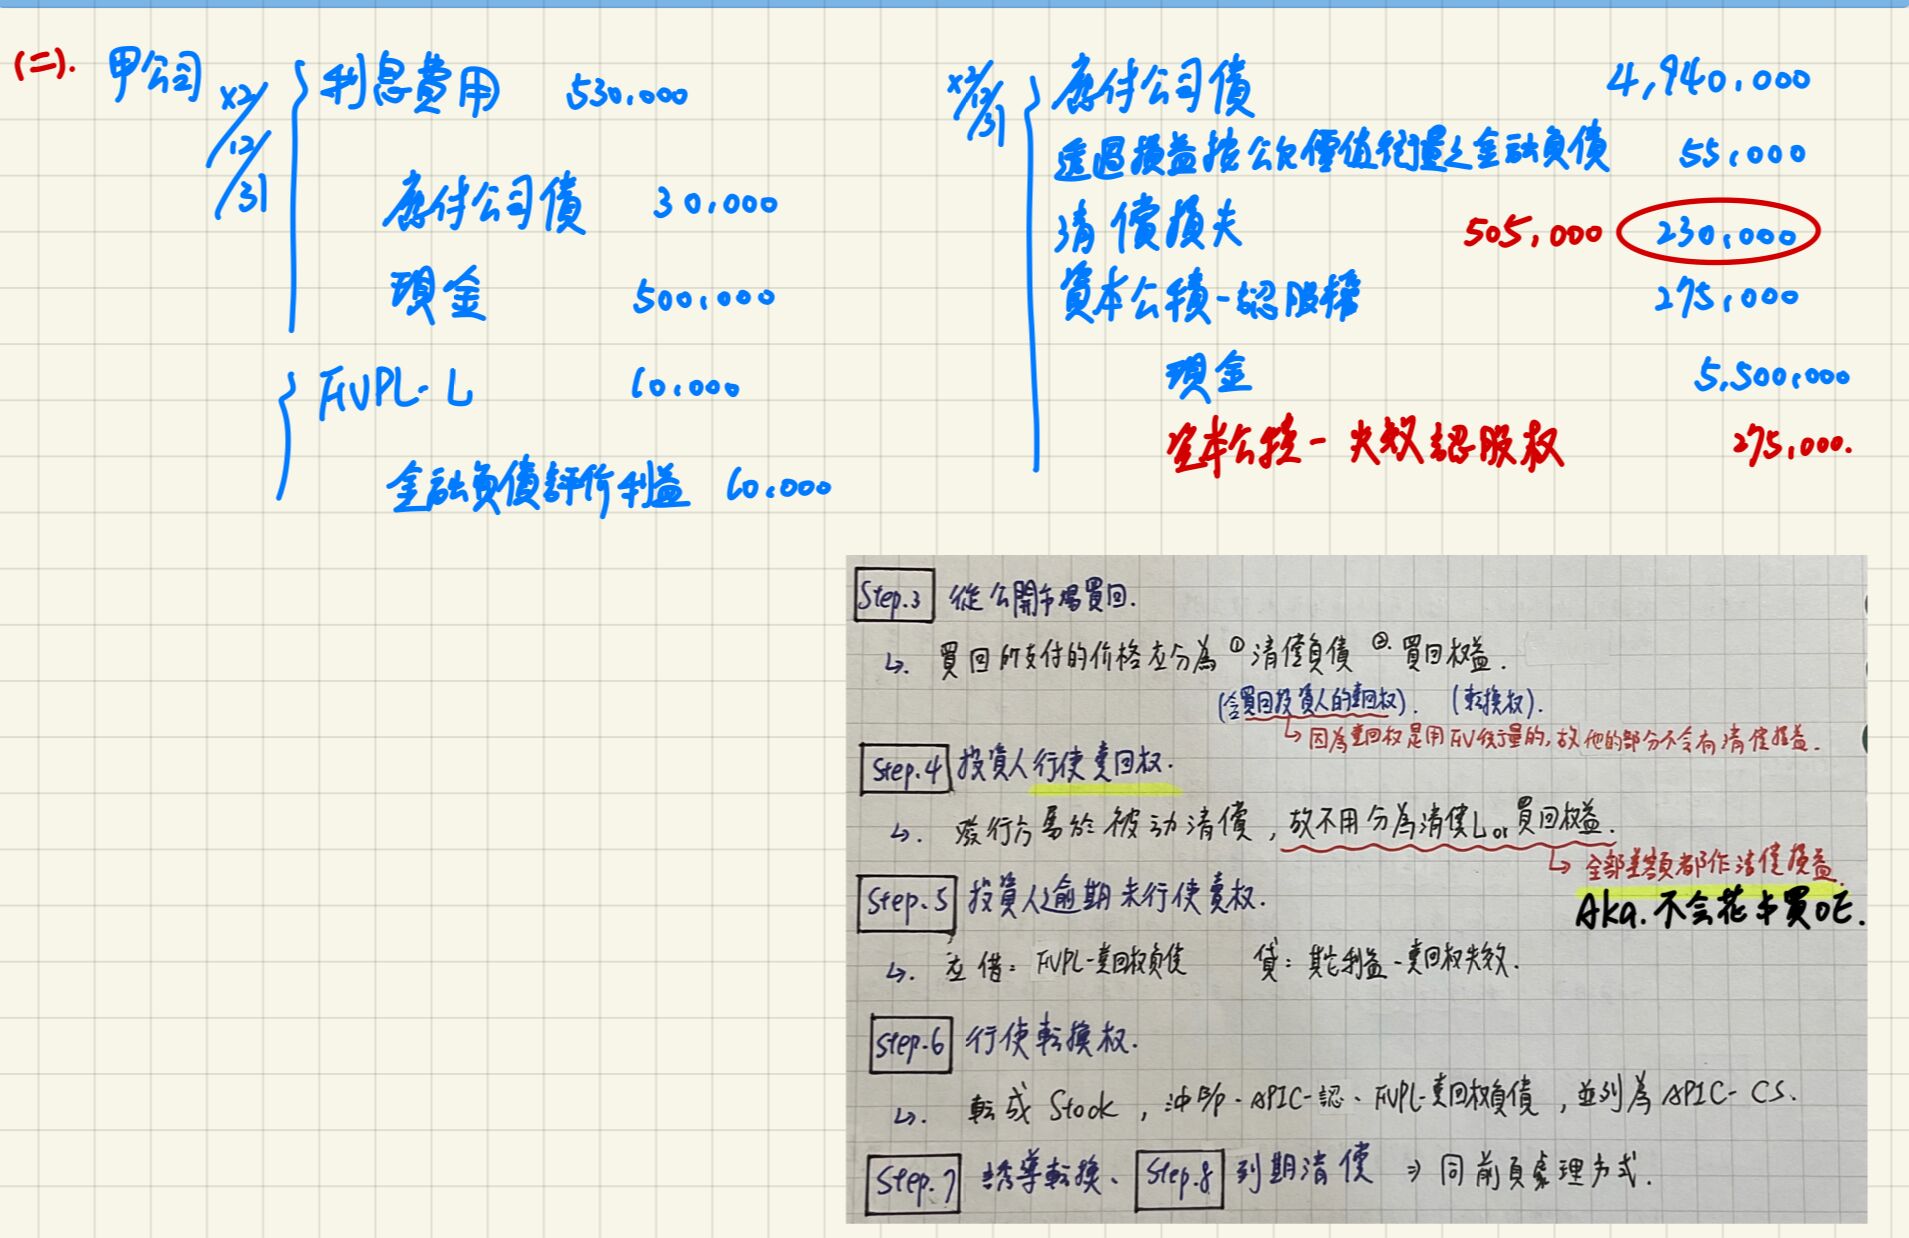 (二). 甲公司
x2/12/31
利息費用 530,000
應付公司債 30,000
現金 500,000
FVPL-L 60,000
金融負債評價利益 60,000
x2/12/31
應付公司債 4,940,000
透過損益按公允價值衡量之金融負債 55,000
清償損失 505,000 230,000
資本公積-認股權 275,000
現金 5,500,000
資本公積-失效認股权 275,000.
Step.3 從公開市場買回.
↳. 買回所支付的价格应分為 ① 清償負債 ②. 買回权益.
(含買回投資人的賣回权). (転換权).
↳ 因為賣回权是用FV衡量的,故他的部分不会有清償損益.
Step.4 投資人行使賣回权.
↳. 發行方屬於被动清償,故不用分為清償L or 買回权益.
↳ 全部差額都作清償損益.
Aka.不会花卡買OE.
Step.5 投資人逾期未行使賣权.
↳. 应借: FVPL-賣回权負債 貸: 其它利益-賣回权失效.
Step.6 行使転換权.
↳. 転成 Stock, 沖B/P、APIC-認、FVPL-賣回权負債,並列為 APIC-CS.
Step.7 誘導転換、 Step.8 到期清償 ⇒ 同前頁處理方式.